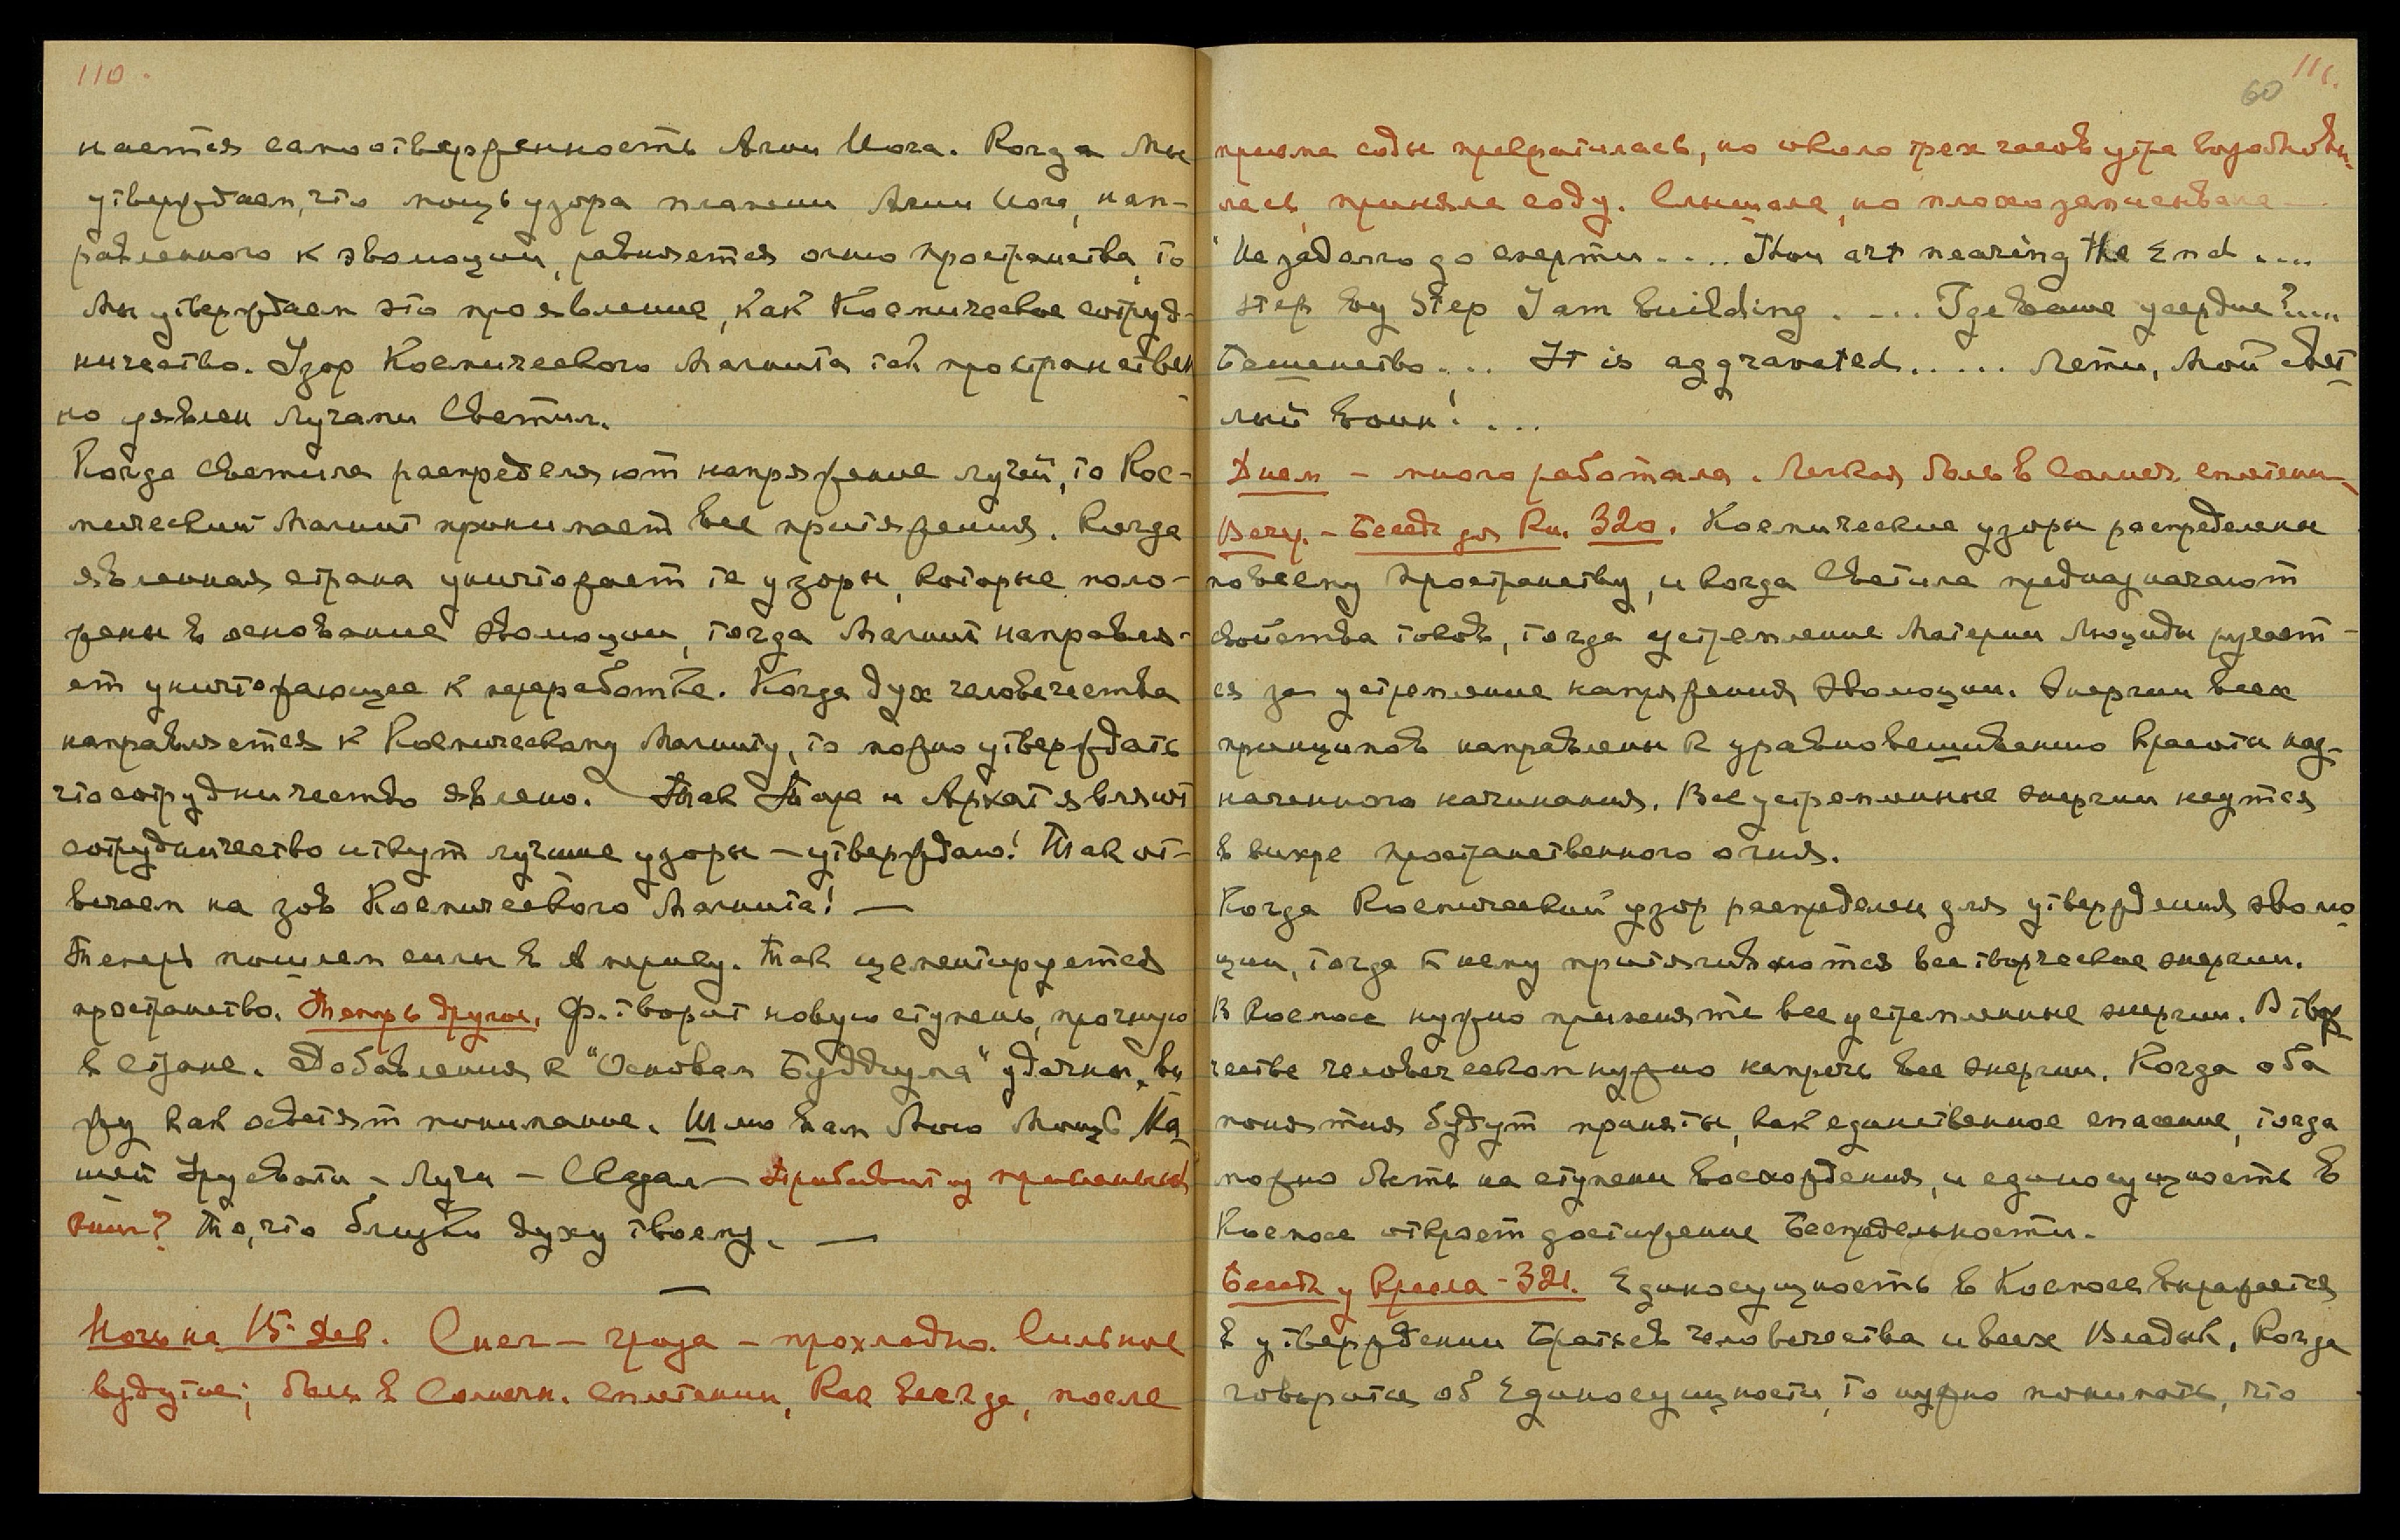 110.
нается самоотверженность Агни Йога. Когда Мы
утверждаем, что мощь узора пламени Агни Йога, нап-
равленного к эволюции, равняется огню пространства, то
Мы утверждаем это проявление, как Космическое сотруд-
ничество. Узор Космического Магнита так пространствен
но уявлен лучами Светил.
Когда Светила распределяют напряжение лучей, то Кос-
мический Магнит принимает все притяжения. Когда
явленная страна уничтожает те узоры, которые поло-
жены в основание эволюции, тогда Магнит направля-
ет уничтожающее к переработке. Когда дух человечества
направляется к Космическому Магниту, то можно утверждать
что сотрудничество явлено. Так Тара и Архат являют
сотрудничество и ткут лучшие узоры — утверждаю! Так от-
вечаем на зов Космического Магнита! —
Теперь пошлем силы в Америку. Так цементируется
пространство. Теперь другое. Ф. творит новую ступень, прочную
в стане. Добавления к "Основам Буддизма" удачны, ви
жу как осветят понимание. Шлю вам Мою Мощь. На
шей Урусвати — Лучи — Сказал —
книг? То, что близко духу твоему. —
Ночь на 15-Дек. Снег — гроза — прохладно. Сильное
вздутие; боль в Солнечн. сплетении, как всегда, после
111.
60
приема соды прекратилась, но около трех часов утра возобнови
лась, приняла соду. Слышала, но плохо записывала —
"Незадолго до смерти.... Thou art nearing the End ....
Step by Step I am building .... Где ваше усердие?....
Бешенство... It is aggravated..... Лети, Мой свет
лый воин! ...
Днем — много работала. Легкая боль в Солнеч. сплетении
Вечер. — Беседа для Кн. 320. Космические узоры распределены
по всему пространству, и когда Светила предназначают
свойства токов, тогда устремление Материи Люциды ручает-
ся за устремление напряжения эволюции. Энергии всех
принципов направлены к уравновешиванию красоты наз-
наченного начинания. Все устремленные энергии несутся
в вихре пространственного огня.
Когда Космический узор распределен для утверждения эволю
ции, тогда к нему притягиваются все творческие энергии.
В Космосе нужно применять все устремленные энергии. В твор
честве человеческом нужно напрячь все энергии. Когда оба
понятия будут приняты, как единственное спасение, тогда
можно быть на ступени восхождения, и единосущность в
Космосе откроет достижение Беспредельности.
Беседа у Кресла — 321. Единосущность в Космосе выражается
в утверждении Братьев человечества и всех Владык. Когда
говорится об Единосущности, то нужно понимать, что